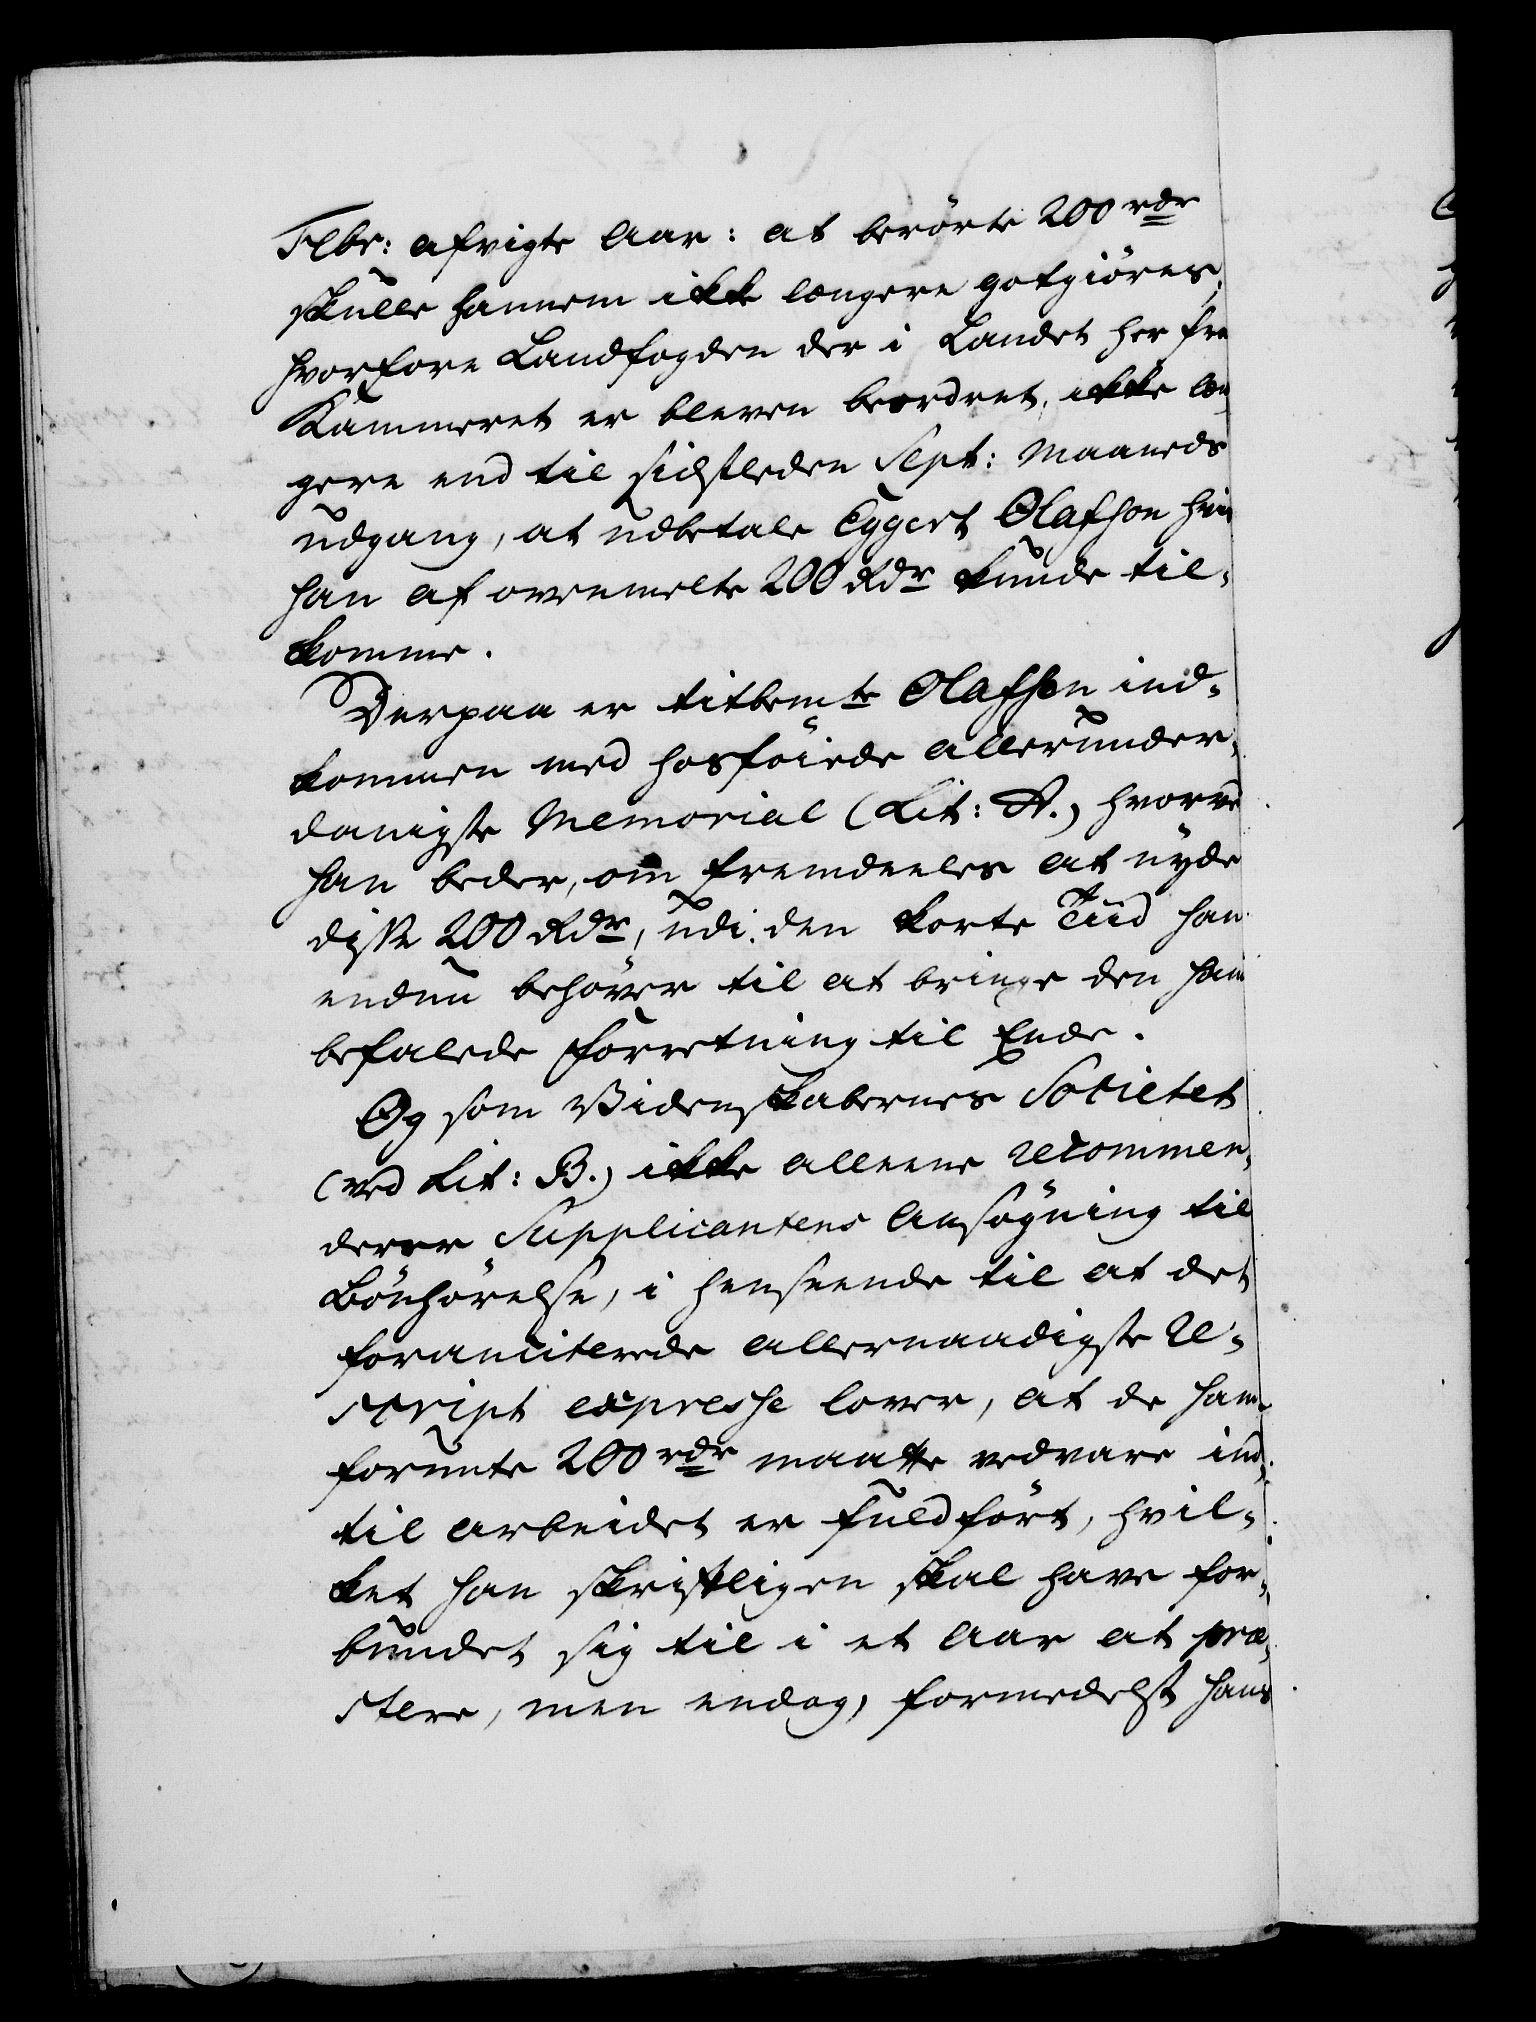 Febr: afvigte Aar: at berörte 200 rdr
skulle hannem ikke længere gotgiöres,
hvorfore Landfogden der i Landet her fra
Kammeret er bleven beordret, ikke læn
gere end til sidstleden Sept: Maaneds
udgang, at udbetale Eggert Olafsen hvis
han af ovenmelte 200 Rdr kunde til-
komme.
Derpaa er titbemte Olafsen ind-
kommen med hosföiede allerunder-
danigste Memorial (Lit: A.) hvorved
han beder, om fremdeeles at nyde
disse 200 Rdr, udi den korte Tiid han
endnu behöver til at bringe den ham
befalede Forretning til Ende.
Og som Videnskabernes Societet
(ved Lit: B.) ikke alleene recommen-
derer Supplicantens Ansögning til
Bönhörelse, i Henseende til at det
foranciterede allernaadigste Re-
script expresse lover, at de ham
forunte 200 rdr maatte vedvare ind-
til Arbeidet er fuldfört, hvil-
ket han skriftligen skal have for-
bundet sig til i et Aar at præ-
stere, men endog, formedelst hans